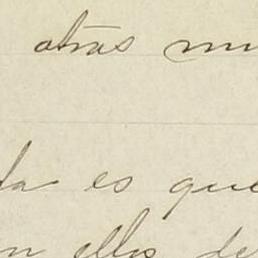 otras mu
da es que
n ellos de